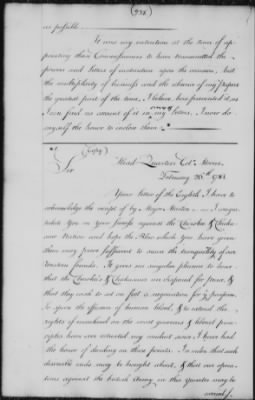 (938)
as possible.
It was my intention at the time of ap-
pointing these Commissioners to have transmitted the
powers and letters of instruction upon the occasion, but
the multiplicity of business and the absence of my Papers
the greatest part of the time, I believe have prevented it, as
I can find no account of it in my letters. I now do
myself the honor to inclose them.
(Copy)
Sir
Head Quarters
February 26th 1781
Your letter of the Eighth I have to
acknowledge the receipt of by Major Martin
late you on your success against the Cherokee &
Nation and hope the Blow which you have given
them may prove sufficient to secure the tranquillity of our
Western friends. It gives me singular pleasure to hear
that the Cherokee's & Chickasaws are disposed for peace, &
that they wish to set on foot a negociation for the purpose.
To spare the effusion of human blood, & to extend the
rights of mankind on the most generous & liberal prin-
ciples have ever directed my conduct since I have had
the honor of deciding on these points. In order that such
desirable ends may be brought about, & that our opera-
tions against the british Army in this quarter may be